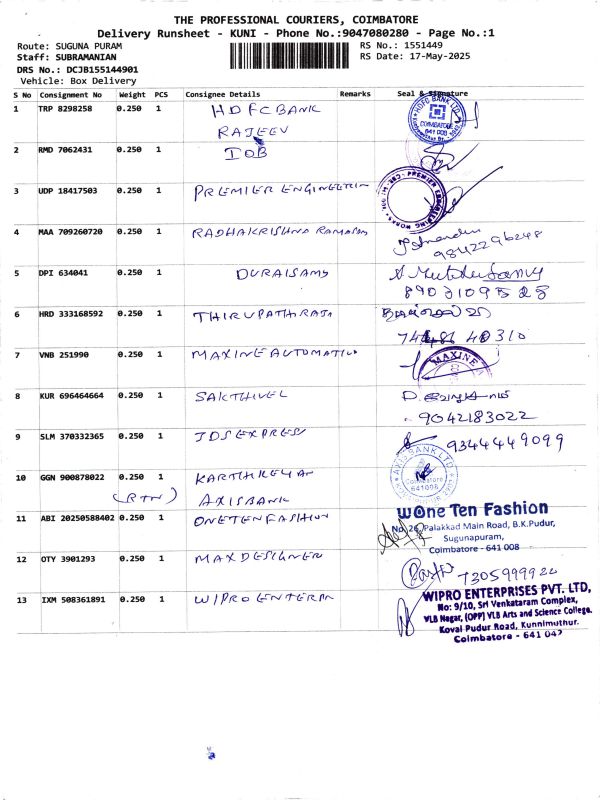 THE PROFESSIONAL COURIERS, COIMBATORE
Delivery Runsheet - KUNI - Phone No.:9047080280 - Page No.:1
Route: SUGUNA PURAM
RS No.: 1551449
Staff: SUBRAMANIAN
RS Date: 17-May-2025
DRS No.: DCJB155144901
Vehicle: Box Delivery
S No Consignment No Weight PCS Consignee Details Remarks Seal & Signature
1 TRP 8298258 0.250 1 HDFC BANK
RAJEEV
HDFC BANK LTD
COIMBATORE
641 008
2 RMD 7062431 0.250 1 IOB
3 UDP 18417503 0.250 1 PREMIER ENGINEERIN
PREMIER ENGINEERING WORKS
4 MAA 709260720 0.250 1 RADHAKRISHNA RAMASAMY
9842296248
5 DPI 634041 0.250 1 DURAISAMY
8903109525
6 HRD 333168592 0.250 1 THIRUPATHRAJA
40310
7 VNB 251990 0.250 1 MAXINE AUTOMATIV
MAXINE
8 KUR 696464664 0.250 1 SAKTHIVEL
9042183022
9 SLM 370332365 0.250 1 JDS EXPRESS
9344449099
10 GGN 900878022 0.250 1 KARTHIKEYAN
(RTN) AXIS BANK
AXIS BANK LTD
Coimbatore
641008
11 ABI 20250588402 0.250 1 ONETEN FASHION
One Ten Fashion
No. 26, Palakkad Main Road, B.K.Pudur,
Sugunapuram,
Coimbatore - 641 008
12 OTY 3901293 0.250 1 MAX DESIGNER
7305999920
13 IXM 508361891 0.250 1 WIPRO ENTERPR
WIPRO ENTERPRISES PVT. LTD,
No: 9/10, Sri Venkataram Complex,
VLB Nagar, (OPP) VLB Arts and Science College.
Kovai Pudur Road, Kunnimuthur.
Coimbatore - 641 042